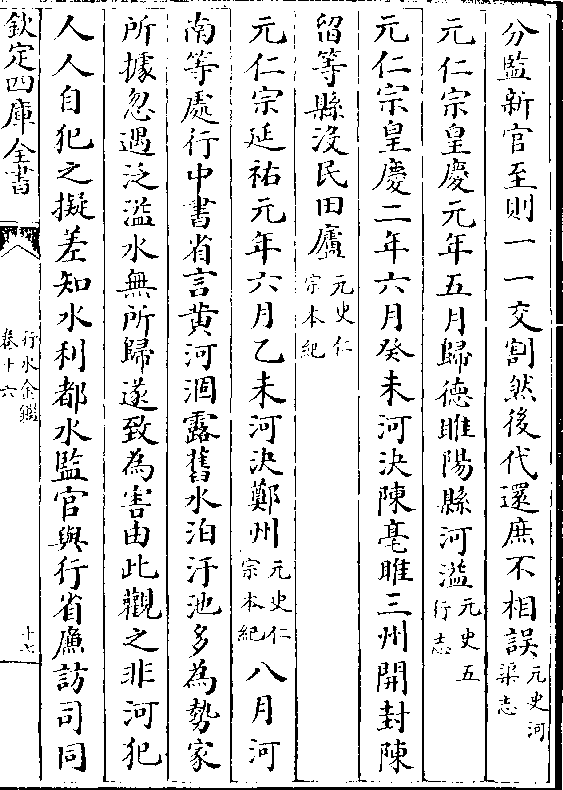 分監新官至則一一交割然後代還庶不相誤元史河渠志
元仁宗皇慶元年五月歸德睢陽縣河溢元史五行志
元仁宗皇慶二年六月癸未河決陳亳睢三州開封陳
留等縣沒民田廬元史仁宗本紀
元仁宗延祐元年六月乙未河決鄭州元史仁宗本紀八月河
南等處行中書省言黄河涸露舊水泊汙池多為勢家
所據忽遇泛濫水無所歸遂致為害由此觀之非河犯
人人自犯之擬差知水利都水監官與行省廉訪司同
欽定四庫全書
行水金鑑
卷十六
十七